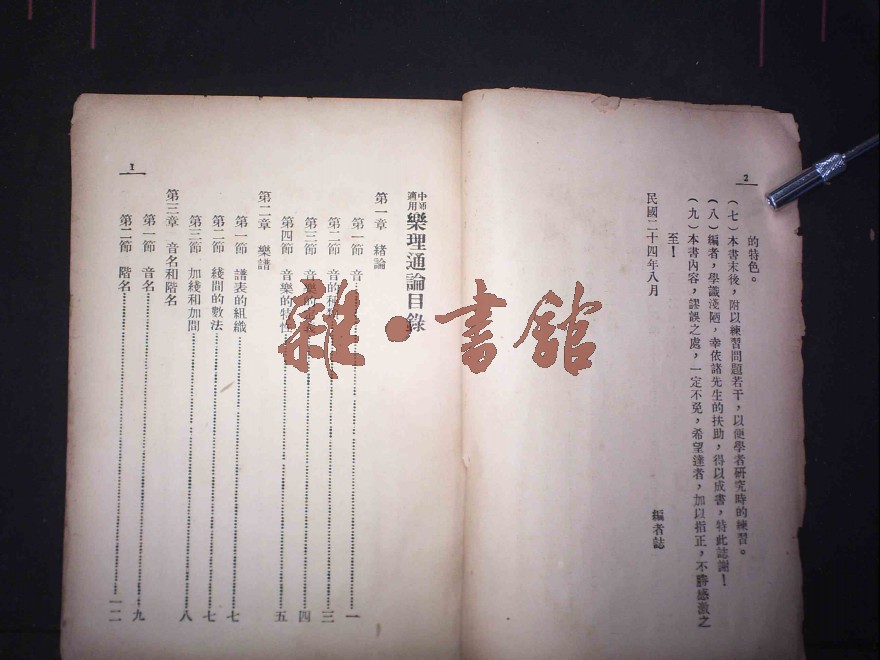 2
的特色。
(七)本書末後，附以練習問題若干，以便學者研究時的練習。
(八)編者，學識淺陋，幸依諸先生的扶助，得以成書，特此誌謝！
(九)本書內容，謬誤之處，一定不免，希望達者，加以指正，不勝感激之
至！
民國二十四年八月
編者誌
1
中師適用 樂理通論目錄
第一章 緒論
第一節 音……一
第二節 音的種……三
第三節 音樂的……四
第四節 音樂的特性……五
第二章 樂譜
第一節 譜表的組織……七
第二節 綫間的數法……七
第三節 加綫和加間……八
第三章 音名和階名
第一節 音名……九
第二節 階名……一二
雜·書館